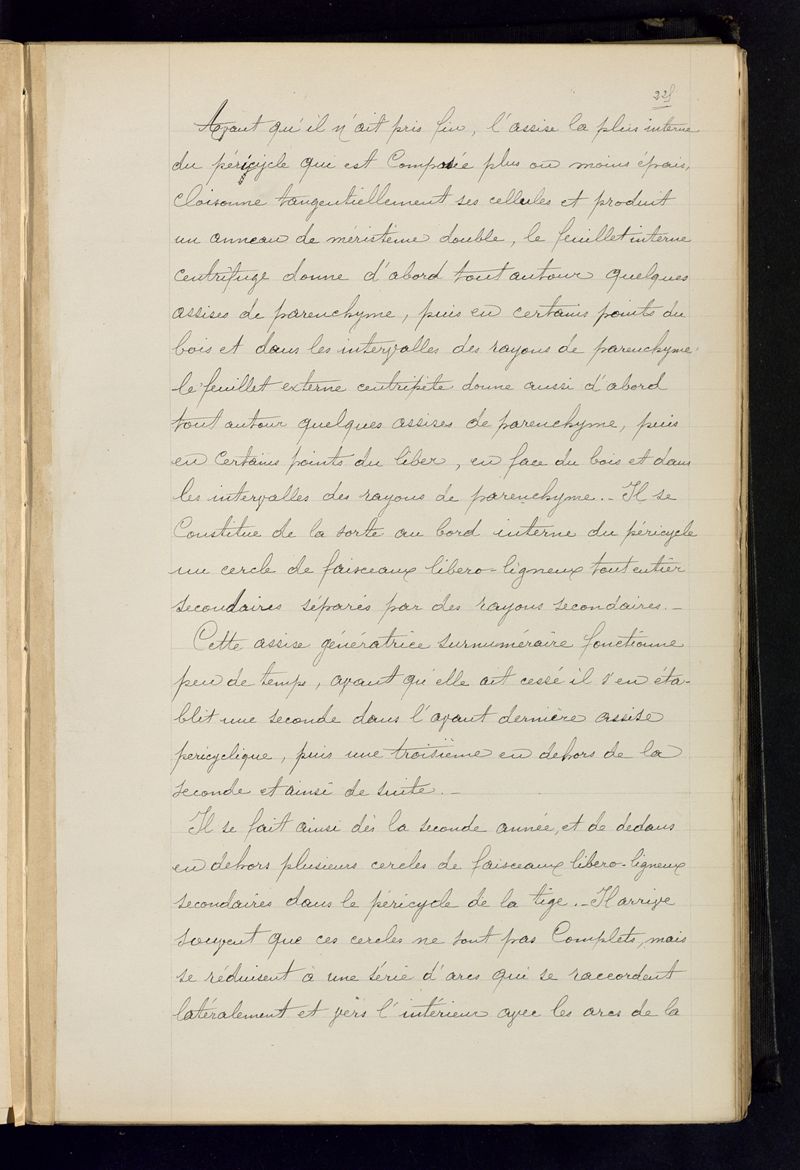 Avant qu'il n'ait pris fin, l'assise la plus interne
du péricycle qui est Composée plus ou moins épais,
cloisonne tangentiellement ses cellules et produit
un anneau de méristème double, le feuillet interne
centrifuge donne d'abord tout autour quelques
assises de parenchyme, puis en certains points du
bois et dans les intervalles des rayons de parenchyme.
le feuillet externe centripète donne aussi d'abord
tout autour quelques assises de parenchyme, puis
en certains points du liber, en face du bois et dans
les intervalles des rayons de parenchyme. — Il se
Constitue de la sorte au bord interne du péricycle
un cercle de faisceaux libero-ligneux tout entier
secondaires séparés par des rayons secondaires. —
Cette assise génératrice surnuméraire fonctionne
peu de temps, avant qu'elle ait cessé il s'en éta-
blit une seconde dans l'avant dernière assise
pericyclique, puis une troisième en dehors de la
seconde et ainsi de suite. —
Il se fait ainsi dès la seconde année, et de dedans
en dehors plusieurs cercles de faisceaux libero-ligneux
secondaires dans le péricycle de la tige. — Il arrive
souvent que ces cercles ne sont pas Complets, mais
se réduisent à une série d'arcs qui se raccordent
latéralement et vers l'intérieur avec les arcs de la